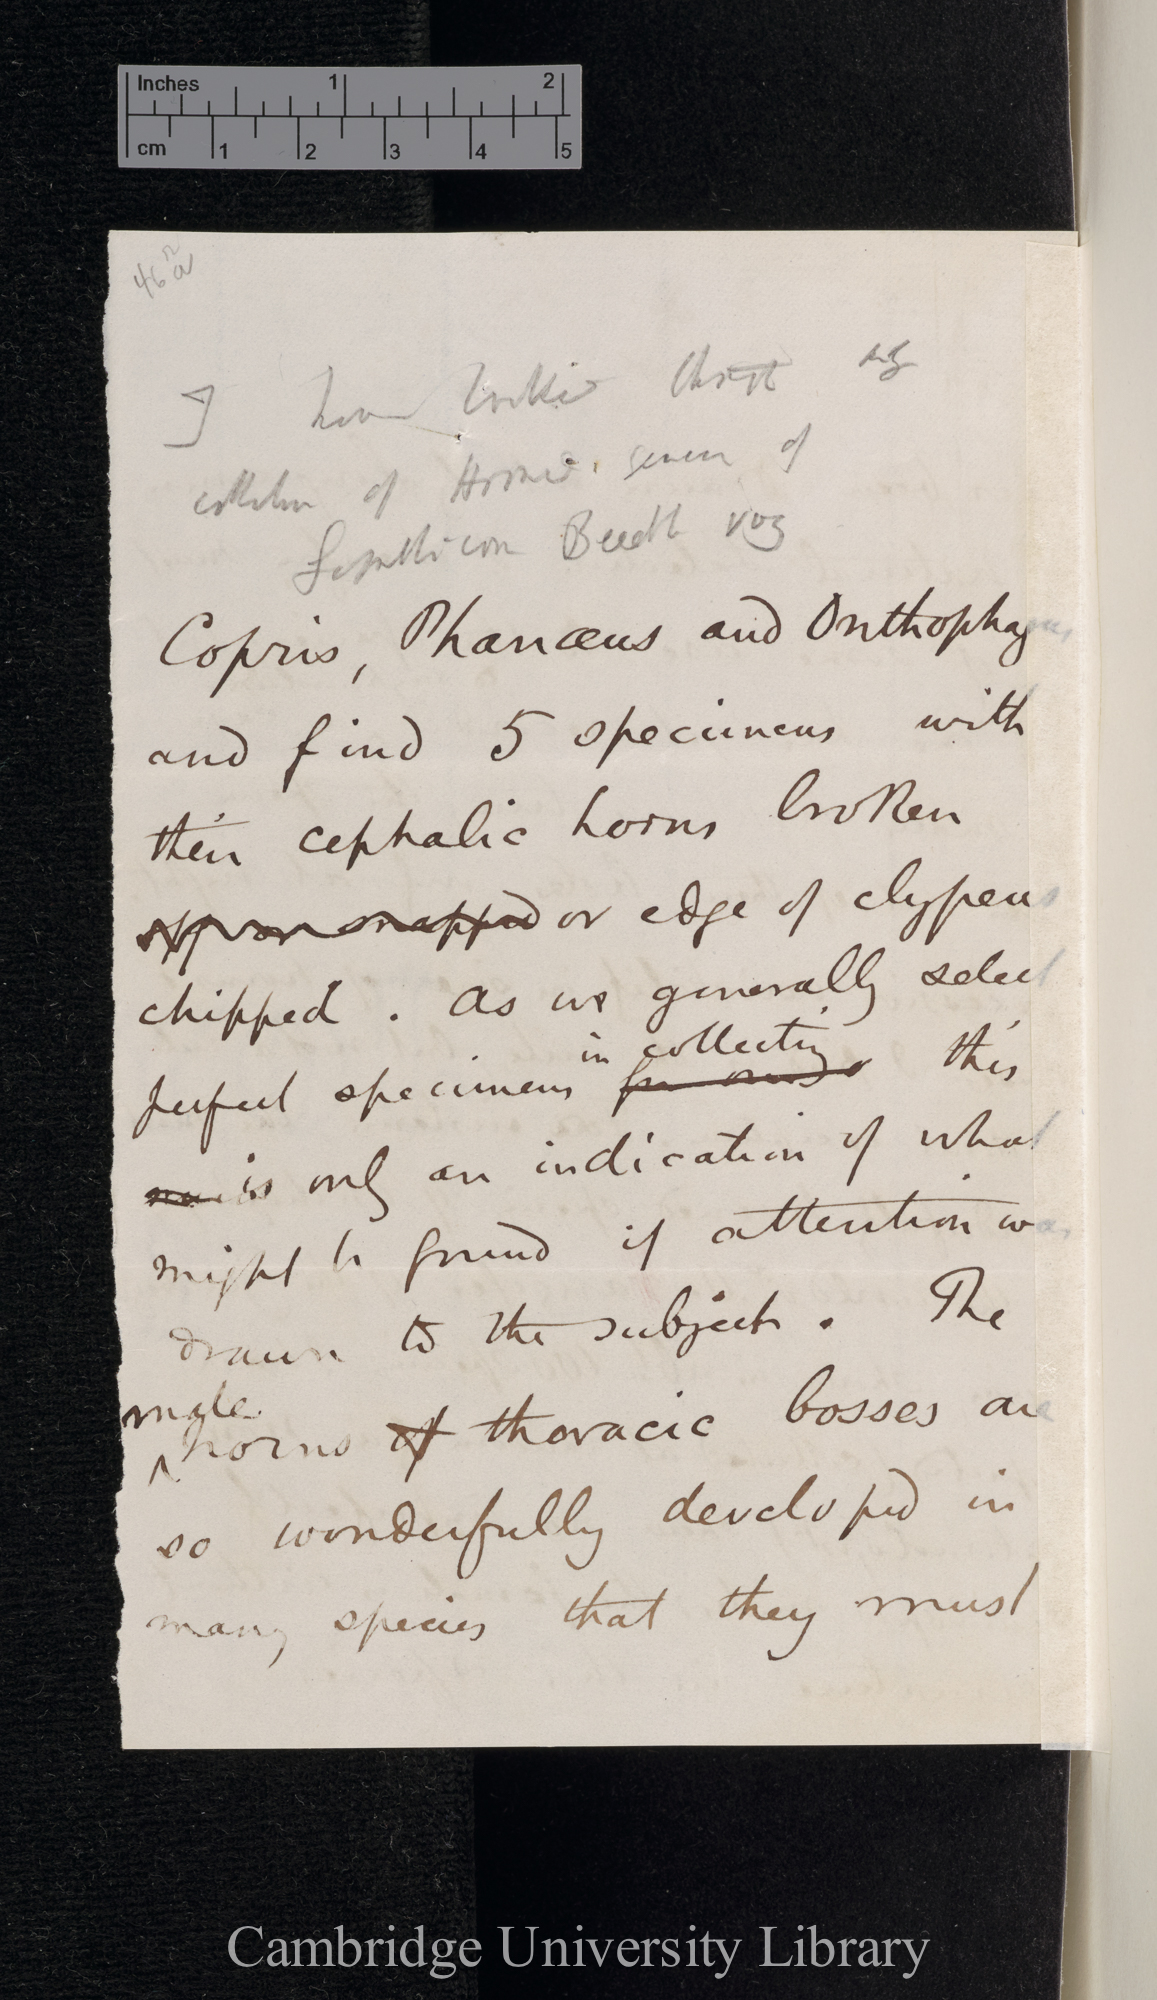 Inches 1 2
cm 1 2 3 4 5
46a
I have looked through my
collection of Horned genera of
Lamellicorn Beetle viz
Copris, Phanæus and Onthophagus
and find 5 specimens with
their cephalic horns broken
off or snapped or edge of clypeus
chipped. As we generally select
in collecting
perfect specimens this
is only an indication of what
might be found if attention was
drawn to the subject. The
male
horns of thoracic bosses are
so wonderfully developed in
many species that they must
Cambridge University Library